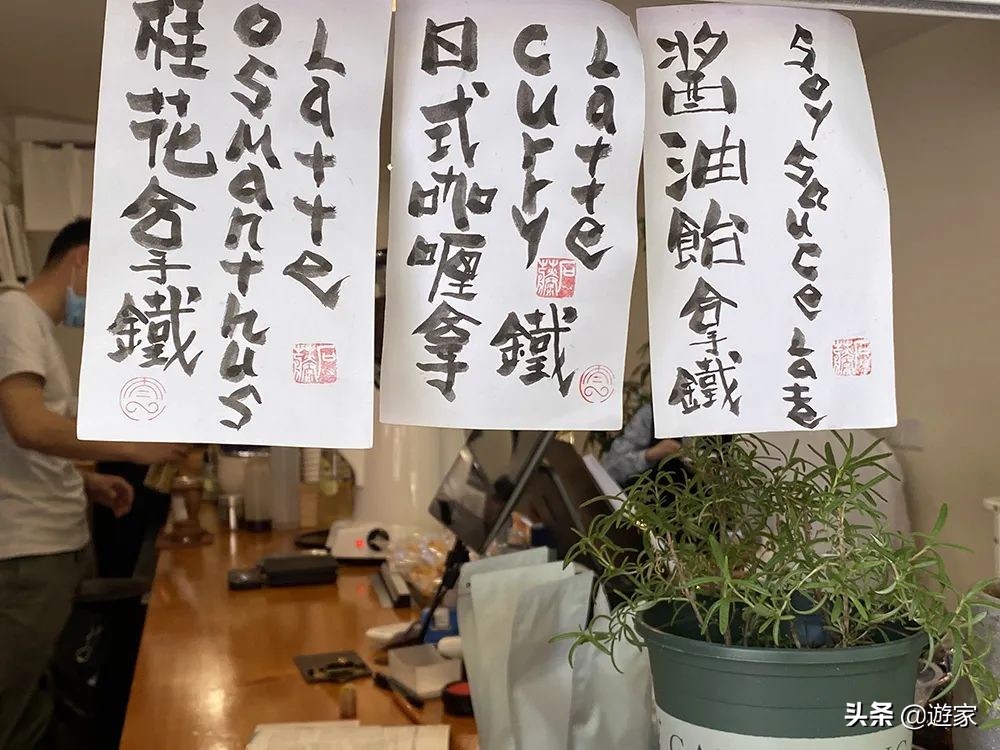 桂花拿鐵
Osmanthus
Latte
日式咖喱拿鐵
Curry
Latte
醬油飴拿鐵
Soy Sauce Latte
头条 @遊家